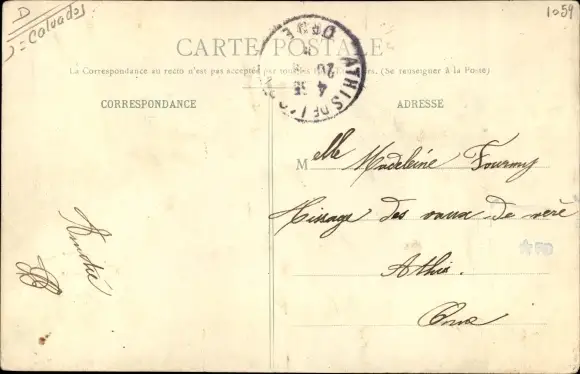 D
= Calvados
1059
CARTE POSTALE
La Correspondance au recto n'est pas acceptée par tous les (Se renseigner à la Poste)
CORRESPONDANCE
ADRESSE
ATHIS DE L'ORNE
4
20
ORNE
Melle Madeleine Fourmy
Tissage des vaux de veré
Athis.
Orne
André